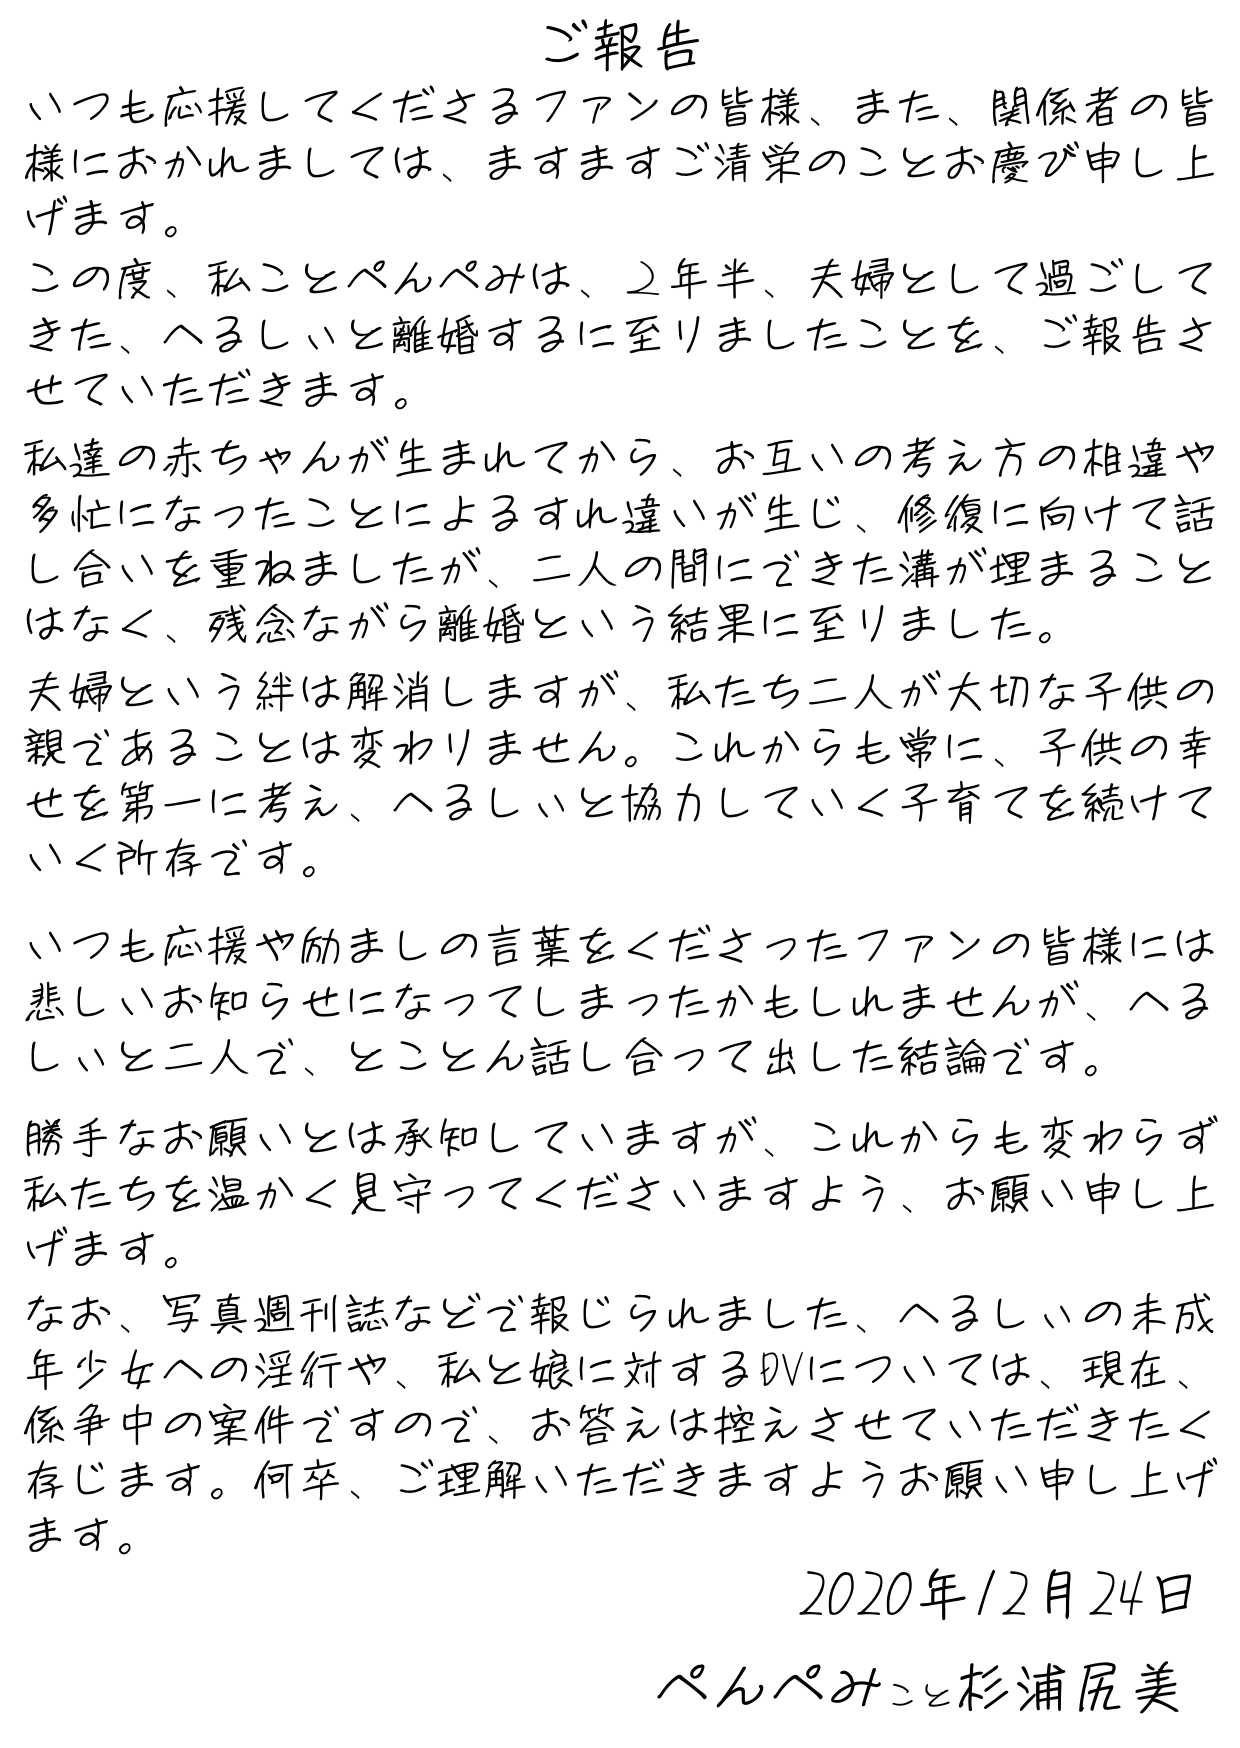 ご報告
いつも応援してくださるファンの皆様、また、関係者の皆
様におかれましては、ますますご清栄のことお慶び申し上
げます。
この度、私ことぺんぺみは、2年半、夫婦として過ごして
きた、へるしぃと離婚するに至りましたことを、ご報告さ
せていただきます。
私達の赤ちゃんが生まれてから、お互いの考え方の相違や
多忙になったことによるすれ違いが生じ、修復に向けて話
し合いを重ねましたが、二人の間にできた溝が埋まること
はなく、残念ながら離婚という結果に至りました。
夫婦という絆は解消しますが、私たち二人が大切な子供の
親であることは変わりません。これからも常に、子供の幸
せを第一に考え、へるしぃと協力していく子育てを続けて
いく所存です。
いつも応援や励ましの言葉をくださったファンの皆様には
悲しいお知らせになってしまったかもしれませんが、へる
しぃと二人で、とことん話し合って出した結論です。
勝手なお願いとは承知していますが、これからも変わらず
私たちを温かく見守ってくださいますよう、お願い申し上
げます。
なお、写真週刊誌などで報じられました、へるしぃの未成
年少女への淫行や、私と娘に対するDVについては、現在、
係争中の案件ですので、お答えは控えさせていただきたく
存じます。何卒、ご理解いただきますようお願い申し上げ
ます。
2020年12月24日
ぺんぺみこと杉浦尻美